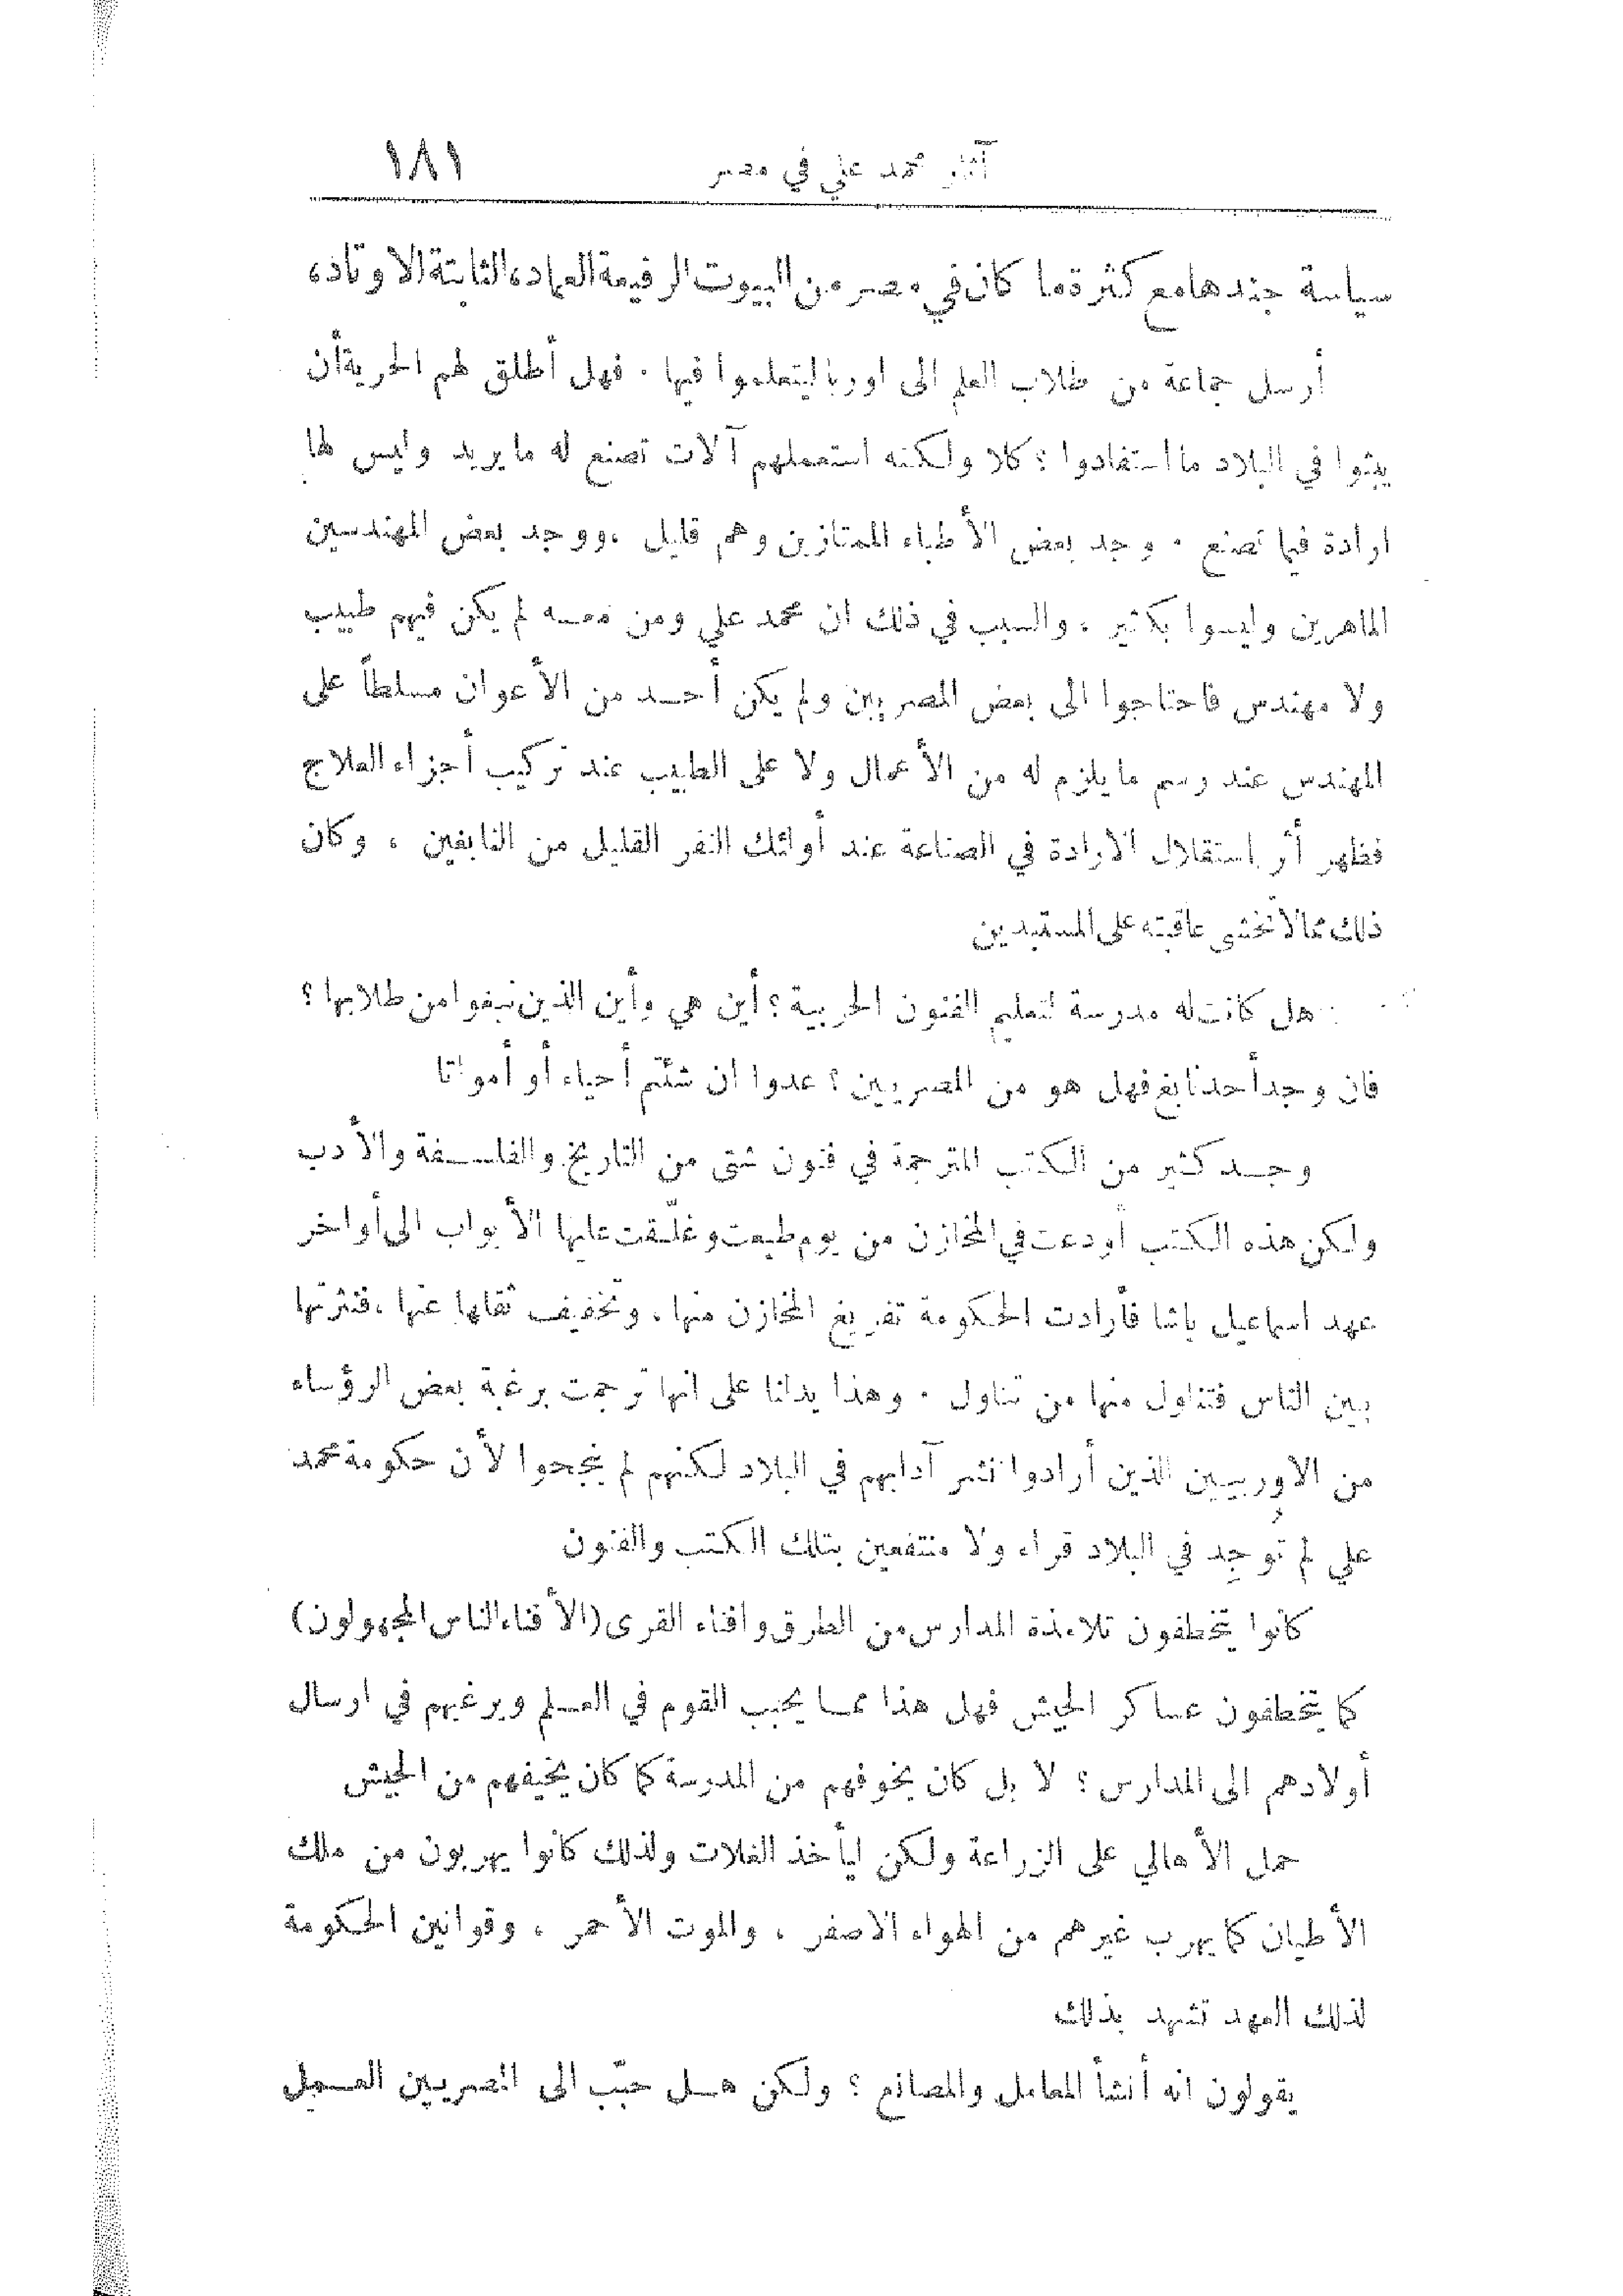 آثار محمد علي في مصر ١٨١
سياسة جندها مع كثرة ما كان في مصر من البيوت الرفيعة العماد، الثابتة الاوتاد،
أرسل جماعة من طلاب العلم الى اوربا ليتعلموا فيها . فهل أطلق لهم الحرية أن
يبثوا في البلاد ما استفادوا ؟ كلا ولكنه استعملهم آلات تصنع له ما يريد وليس لها
ارادة فيما تصنع . وجد بعض الأطباء الممتازين وهم قليل ، ووجد بعض المهندسين
الماهرين وليسوا بكثير ، والسبب في ذلك ان محمد علي ومن معه لم يكن فيهم طبيب
ولا مهندس فاحتاجوا الى بعض المصريين ولم يكن أحد من الأعوان مسلطاً على
المهندس عند رسم ما يلزم له من الأعمال ولا على الطبيب عند تركيب أجزاء العلاج
فظهر أثر استقلال الارادة في الصناعة عند أولئك النفر القليل من النابغين ، وكان
ذلك مما لا تخشى عاقبته على المستبدين
هل كانت له مدرسة لتعليم الفنون الحربية ؟ أين هي وأين الذين نبغوا من طلابها ؟
فان وجد أحد نابغ فهل هو من المصريين ؟ عدوا ان شئتم أحياء أو أمواتا
وجد كثير من الكتب المترجمة في فنون شتى من التاريخ والفلسفة والأدب
ولكن هذه الكتب أودعت في المخازن من يوم طبعت وغلّقت عليها الأبواب الى أواخر
عهد اسماعيل باشا فأرادت الحكومة تفريغ المخازن منها ، وتخفيف ثقلها عنها ، فنثرتها
بين الناس فتناول منها من تناول . وهذا يدلنا على انها ترجمت برغبة بعض الرؤساء
من الاوربيين الذين أرادوا نشر آدابهم في البلاد لكنهم لم ينجحوا لأن حكومة محمد
علي لم تُوجِد في البلاد قراء ولا منتفعين بتلك الكتب والفنون
كانوا يتخطفون تلامذة المدارس من الطرق وافناء القرى (الأفناء الناس المجهولون)
كما يتخطفون عساكر الجيش فهل هذا مما يحبب القوم في العلم ويرغبهم في ارسال
أولادهم الى المدارس ؟ لا بل كان يخوفهم من المدرسة كما كان يخيفهم من الجيش
حمل الأهالي على الزراعة ولكن ليأخذ الغلات ولذلك كانوا يهربون من ملك
الأطيان كما يهرب غيرهم من الهواء الاصفر ، والموت الأحمر ، وقوانين الحكومة
لذلك العهد تشهد بذلك
يقولون انه أنشأ المعامل والمصانع ؟ ولكن هل حبّب الى المصريين العمل